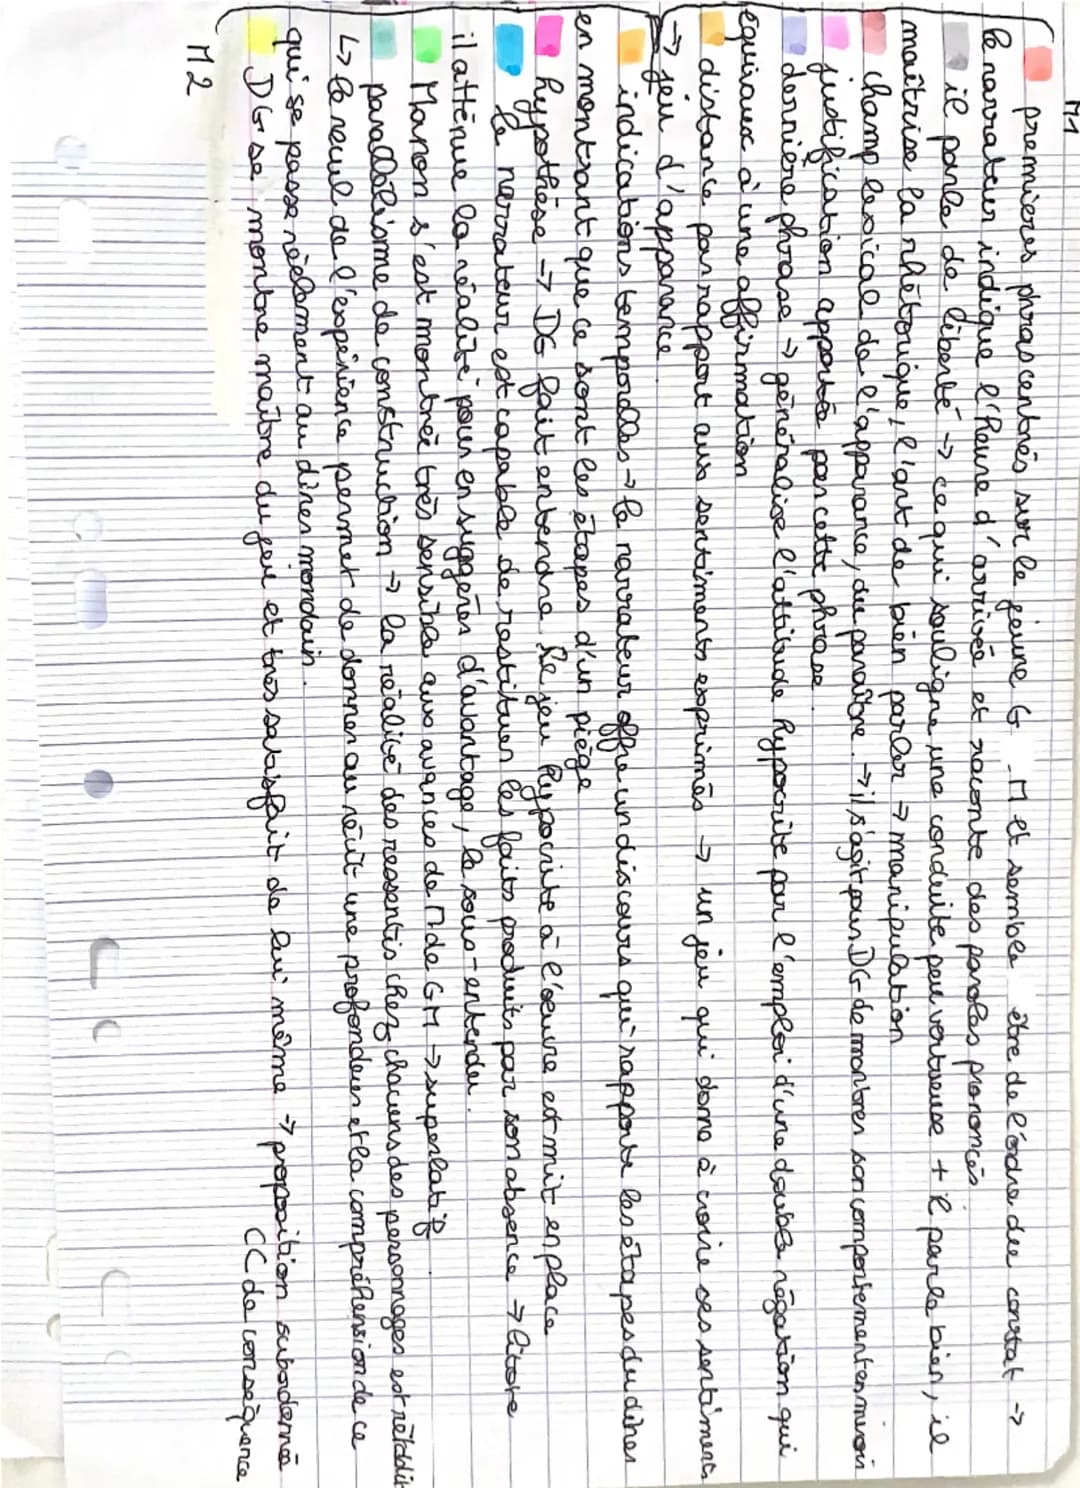 M1
premieres phras centrés sur le jeune G M et semble être de l'ordre du constat →
le narrateur indique l'heure d'arrivée et raconte des paroles prononcés
il parle de liberté → ce qui souligne une conduite peu vertueuse + il parle bien, il
maîtrise la rhétorique, l'art de bien parler → manipulation
champ lexical de l'apparance, du paraître. → il s'agit pour DG de montrer son comportement en
justification apportée par cette phrase
dernière phrase → généralise l'attitude hypocrite par l'emploi d'une double négation qui
équivaux à une affirmation
distance par rapport aux sentiments exprimés → un jeu qui donne à croire ses sentiments
→ jeu d'apparance
indications temporelles → le narrateur offre un discours qui rapporte les étapes du dîner
en montrant que ce sont les étapes d'un piège
hypothèse → DG fait entendre le jeu hypocrite à l'œuvre et mit en place
le narrateur est capable de restituer les faits produits par son absence → litote
il atténue la réalité pour en suggérer d'avantage, le sous-entendu.
Manon s'est montrée très sensible aux avances de M de GM → superlatif
parallélisme de construction → la réalité des ressentis chez chacuns des personnages est rétablit
↳ le recul de l'expérience permet de donner au récit une profondeur et la compréhension de ce
qui se passe réelement au dîner mondain.
DG se montre maître du jeu et très satisfait de lui même → proposition subordonnée
CC de conséquence
M2